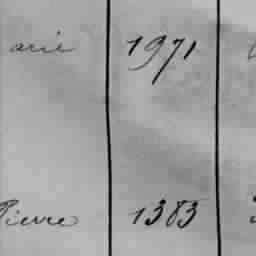 arie 1971
Pierre 1383